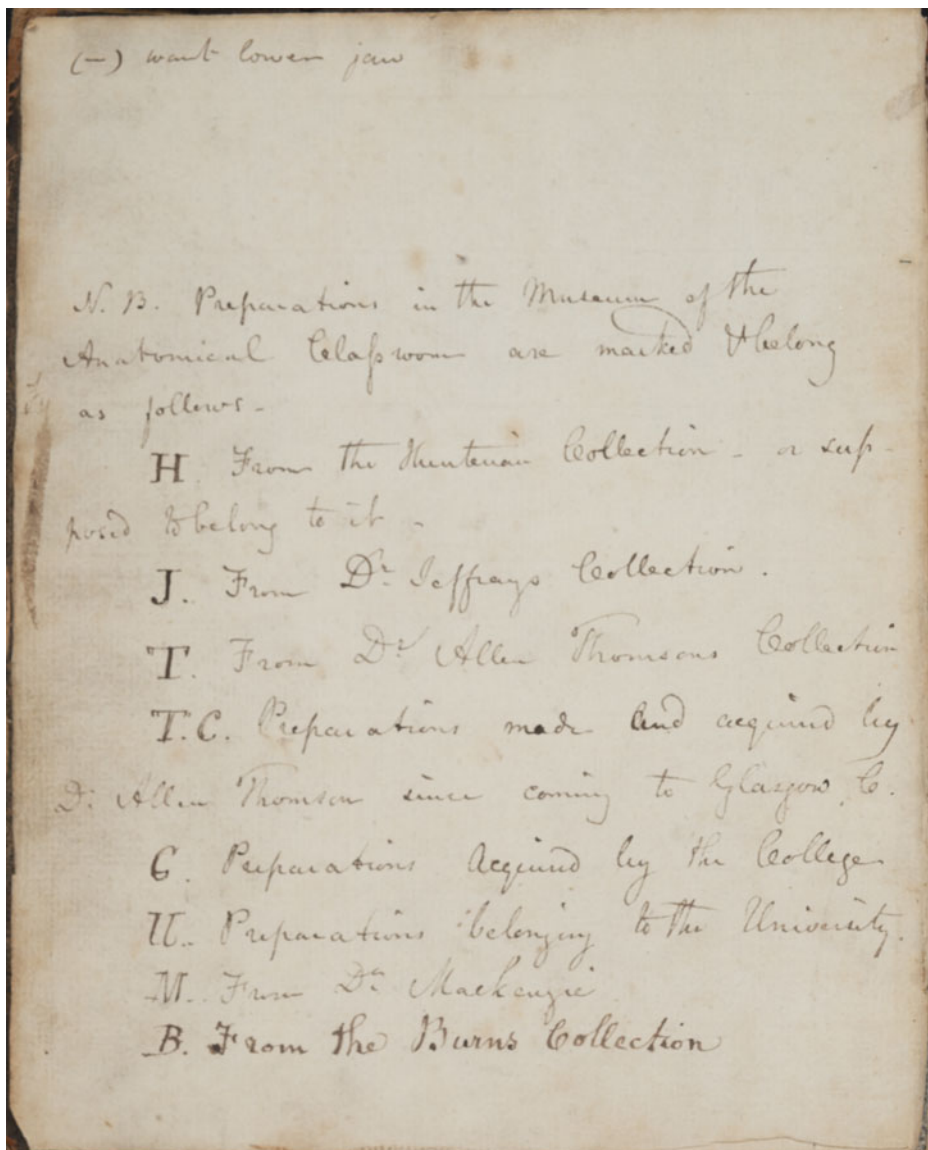 (–) want lower jaw
N. B. Preparations in the Museum of the
Anatomical Claſsroom are marked & belong
as follows –
H From the Hunterian Collection – or sup-
posed to belong to it –
J. From Dr. Jeffrays Collection.
T. From Dr. Allen Thomsons Collection
T.C. Preparations made and acquired by
Dr. Allen Thomson since coming to Glasgow C.
C. Preparations Acquired by the College
U. Preparations belonging to the University.
M. From Dr. Mackenzie
B. From the Burns Collection